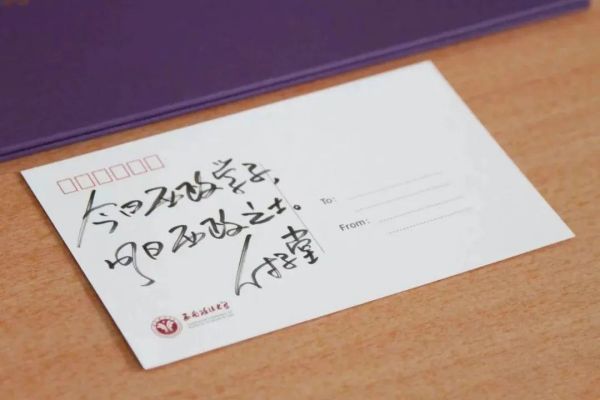 今日西政学子，
明日西政之士。
付子堂
To:
From:
西南政法大学